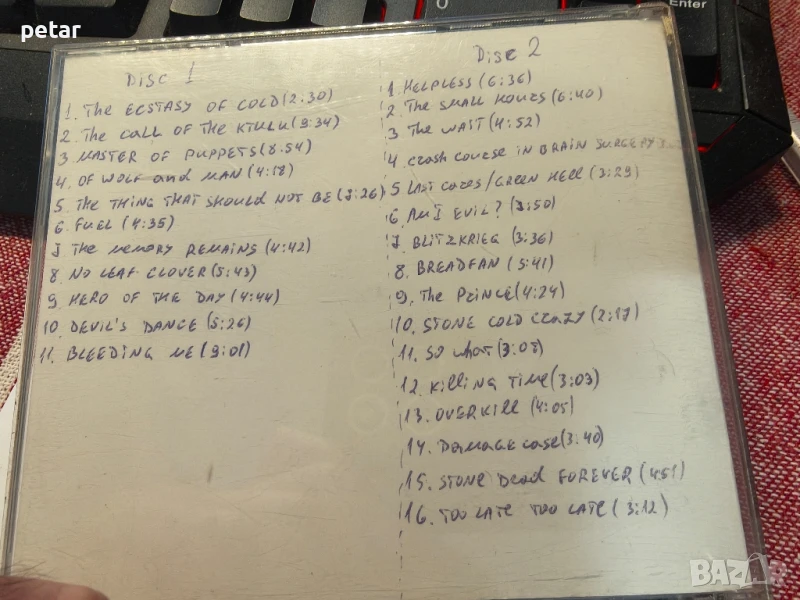 petar
Enter
Disc 1
1. The ECSTASY OF COLD (2:30)
2. The CALL OF THE KTULU (9:34)
3 MASTER OF PUPPETS (8:54)
4. OF WOLF and MAN (4:18)
5. THE THING THAT SHOULD NOT BE (7:26)
6. FUEL (4:35)
7 The memory REMAINS (4:42)
8. NO LEAF CLOVER (5:43)
9. HERO OF THE DAY (4:44)
10. DEVIL'S DANCE (5:26)
11. BLEEDING ME (9:01)
Disc 2
1. HELPLESS (6:36)
2. The SMALL HOURS (6:40)
3 The WAIT (4:52)
4. crash course IN BRAIN SURGERY
5 Last cares/GREEN Hell (3:29)
6. AM I EVIL? (7:50)
7. BLITZKRIEG (3:36)
8. BREADFAN (5:41)
9. The PRINCE (4:24)
10. STONE COLD CRAZY (2:17)
11. SO what (3:08)
12. Killing TIME (3:03)
13. OVERKILL (4:05)
14. Damage case (3:40)
15. STONE Dead FOREVER (4:51)
16. TOO LATE TOO LATE (3:12)
BAZAR